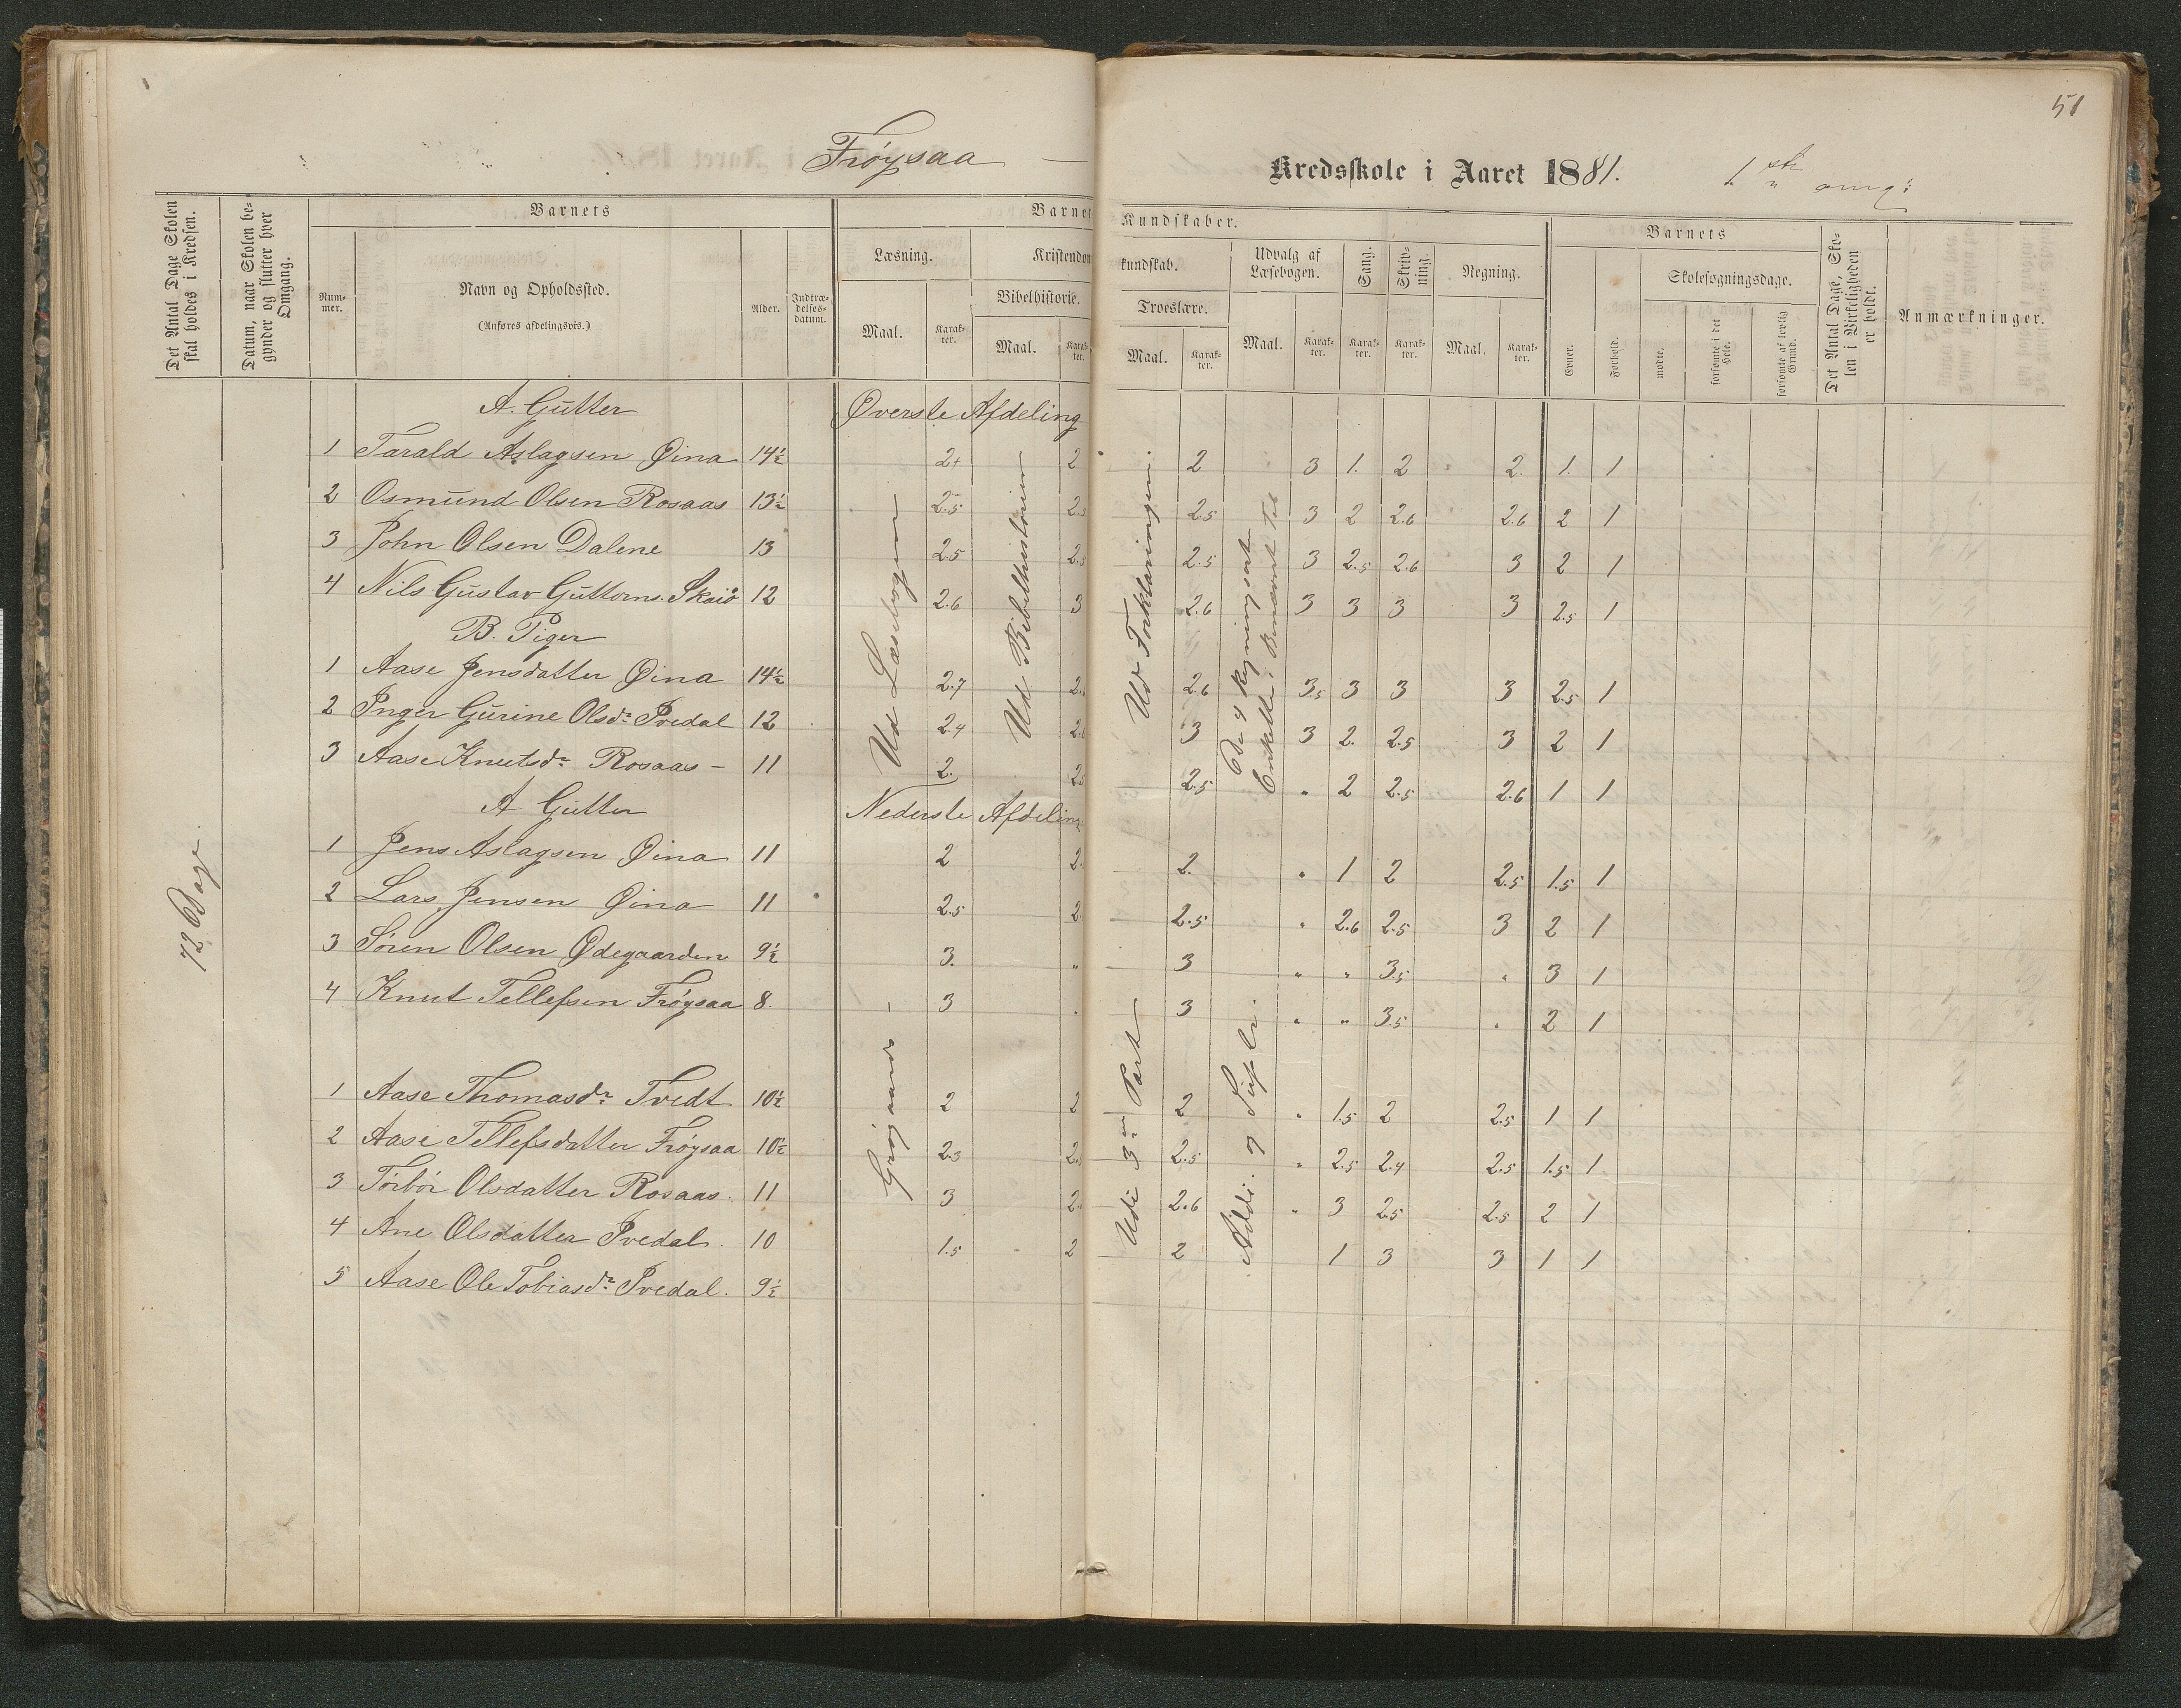 51
Frøysaa — Kredsskole i Aaret 1881. 1ste omg:
Det Antal Dage Skolen skal holdes i Kredsen.
Datum, naar Skolen begynder og slutter hver Omgang.
Barnets
Nummer.
Navn og Opholdssted.
(Anføres afdelingsvis.)
Alder.
Indtrædelsesdatum.
Barnets Kundskaber.
Læsning.
Maal.
Karakter.
Kristendomskundskab.
Bibelhistorie.
Maal.
Karakter.
Troeslære.
Maal.
Karakter.
Udvalg af Læsebogen.
Maal.
Karakter.
Sang.
Karakter.
Skrivning.
Karakter.
Regning.
Maal.
Karakter.
Barnets
Evner.
Forhold.
Skolesøgningsdage.
mødte.
forsømte i det Hele.
forsømte af lovlig Grund.
Det Antal Dage, Skolen i Virkeligheden er holdt.
Anmærkninger.
72 Dage
A. Gutter Øverste Afdeling
1 Tarald Aslagsen Øina 14½ 2+ 2 2 3 1. 2 2. 1. 1
2 Osmund Olsen Rosaas 13½ 2.5 2.5 2.5 3 2 2.6 2.6 2 1
3 John Olsen Dalene 13 2.5 2.5 2.5 3 2.5 2.6 3 2 1
4 Nils Gustav Guttorms. Skaiå 12 2.6 3 2.6 3 3 3 3 2.5 1
B. Piger
1 Aase Jensdatter Øina 14½ 2.7 2. 2.6 3.5 3 3 3 2.5 1
2 Inger Gurine Olsdr Ivedal 12 2.4 2.6 3 3 2. 2.5 3 2 1
3 Aase Knutsdr Rosaas — 11 2. 2.5 2.5 " 2 2.5 2.6 1 1
Ud Læsebogen
Ud Bibelhistorien
Ud Forklaringen.
De 4 Regningsarter
Enkelte,
A Gutter Nederste Afdeling
1 Jens Aslagsen Øina 11 2 2. 2. " 1 2 2.5 1.5 1
2 Lars Jensen Øina 11 2.5 2. 2.5 " 2.6 2.5 3 2 1
3 Søren Olsen Ødegaarden 9½ 3. " 3 " " 3.5 " 3 1
4 Knut Tellefsen Frøysaa 8. 3 " 3 " " 3.5 " 2 1
1 Aase Thomasdr Tvedt 10½ 2 2 2 " 1.5 2 2.5 1 1
2 Aase Tellefsdatter Frøysaa 10½ 2.3 2.5 2.5 " 2.5 2.4 2.5 1.5 1
3 Torbor Olsdatter Rosaas. 11 3 2. 2.6 " 3 2.5 2.5 2 1
4 Ane Olsdatter Ivedal. 10 1.5 2 2 1 3 3 1 1
5 Aase Ole Tobiasdr Ivedal. 9½
Udi 3die Part
Addi. og